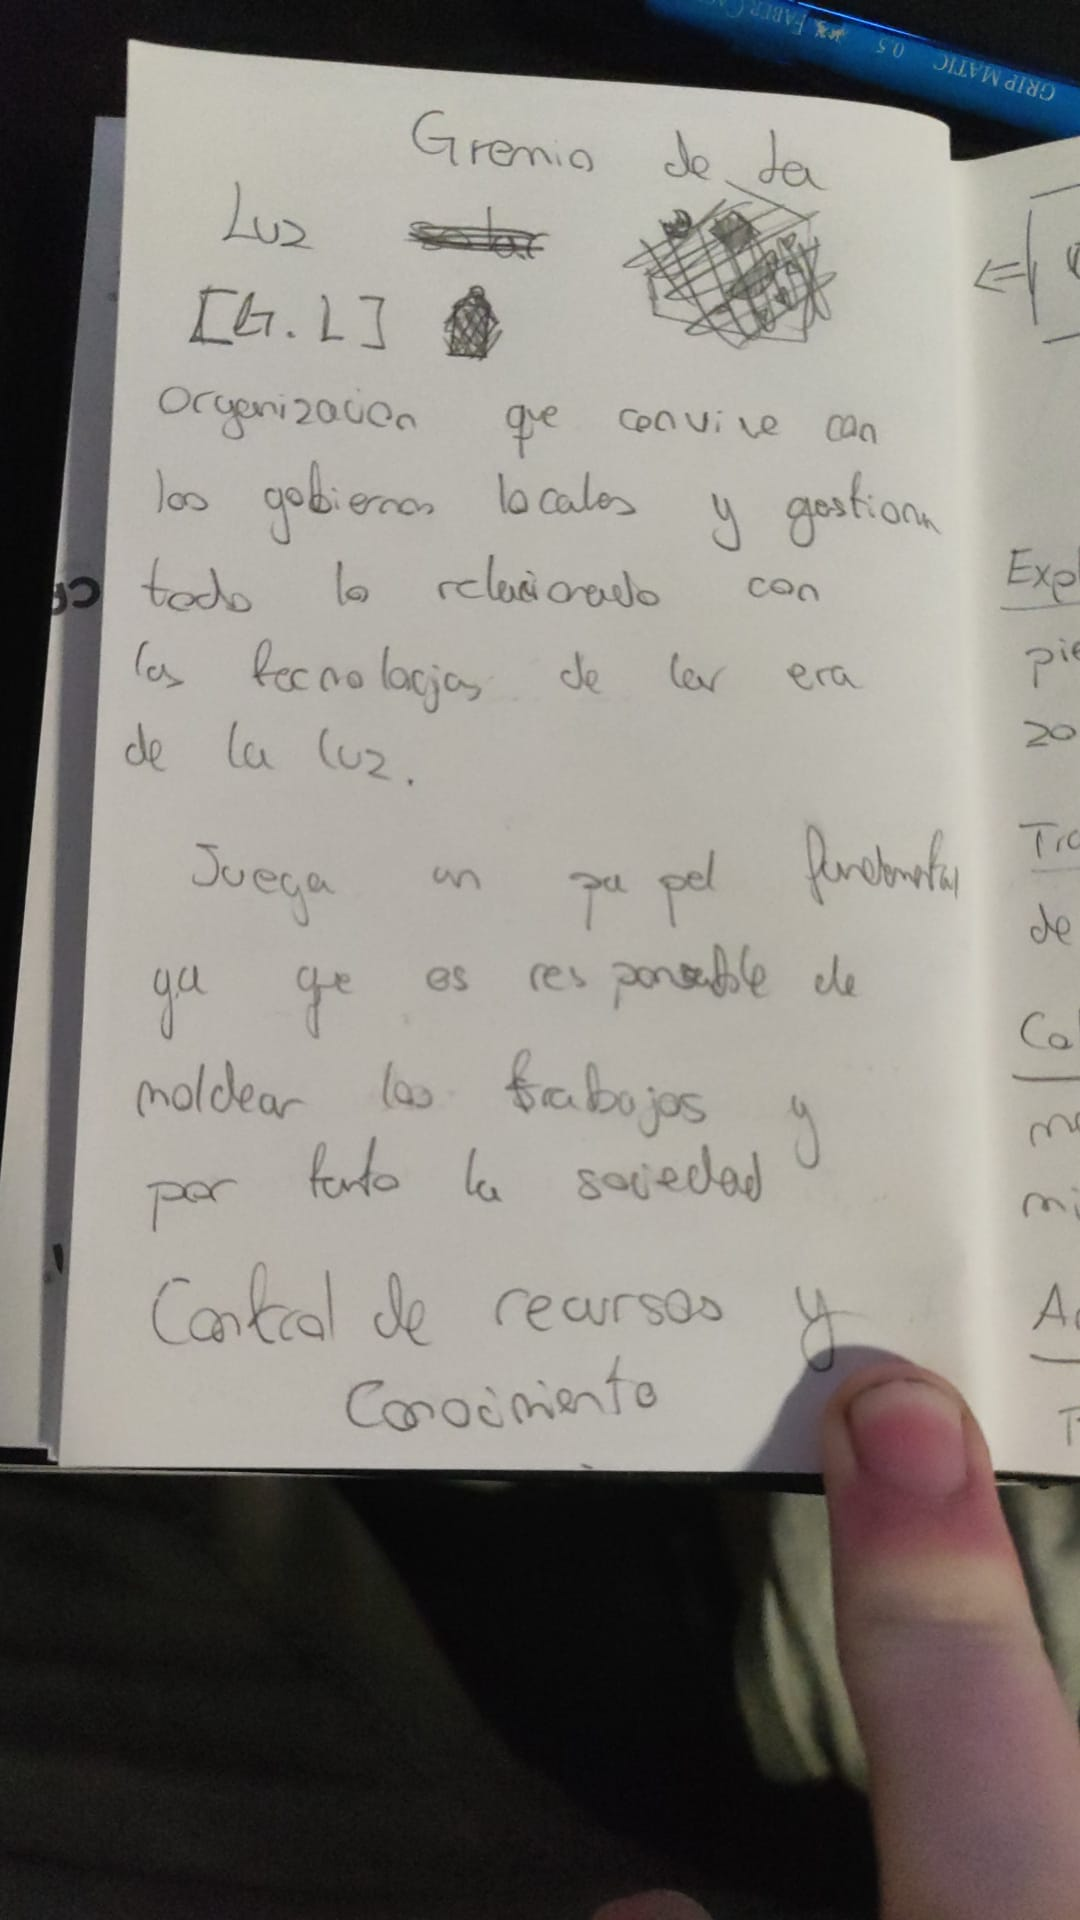 GRIP MATIC 0.5 FABER-CA
Gremio de La
Luz solar
[G.L]
Organización que convive con
los gobiernos locales y gestiona
todo lo relacionado con
las tecnologias de la era
de la luz.
Juega un papel fundamental
ya que es responsable de
moldear los trabajos y
por tanto la sociedad
Control de recursos y
Conocimiento
Exp
pie
20
de
Co
mi